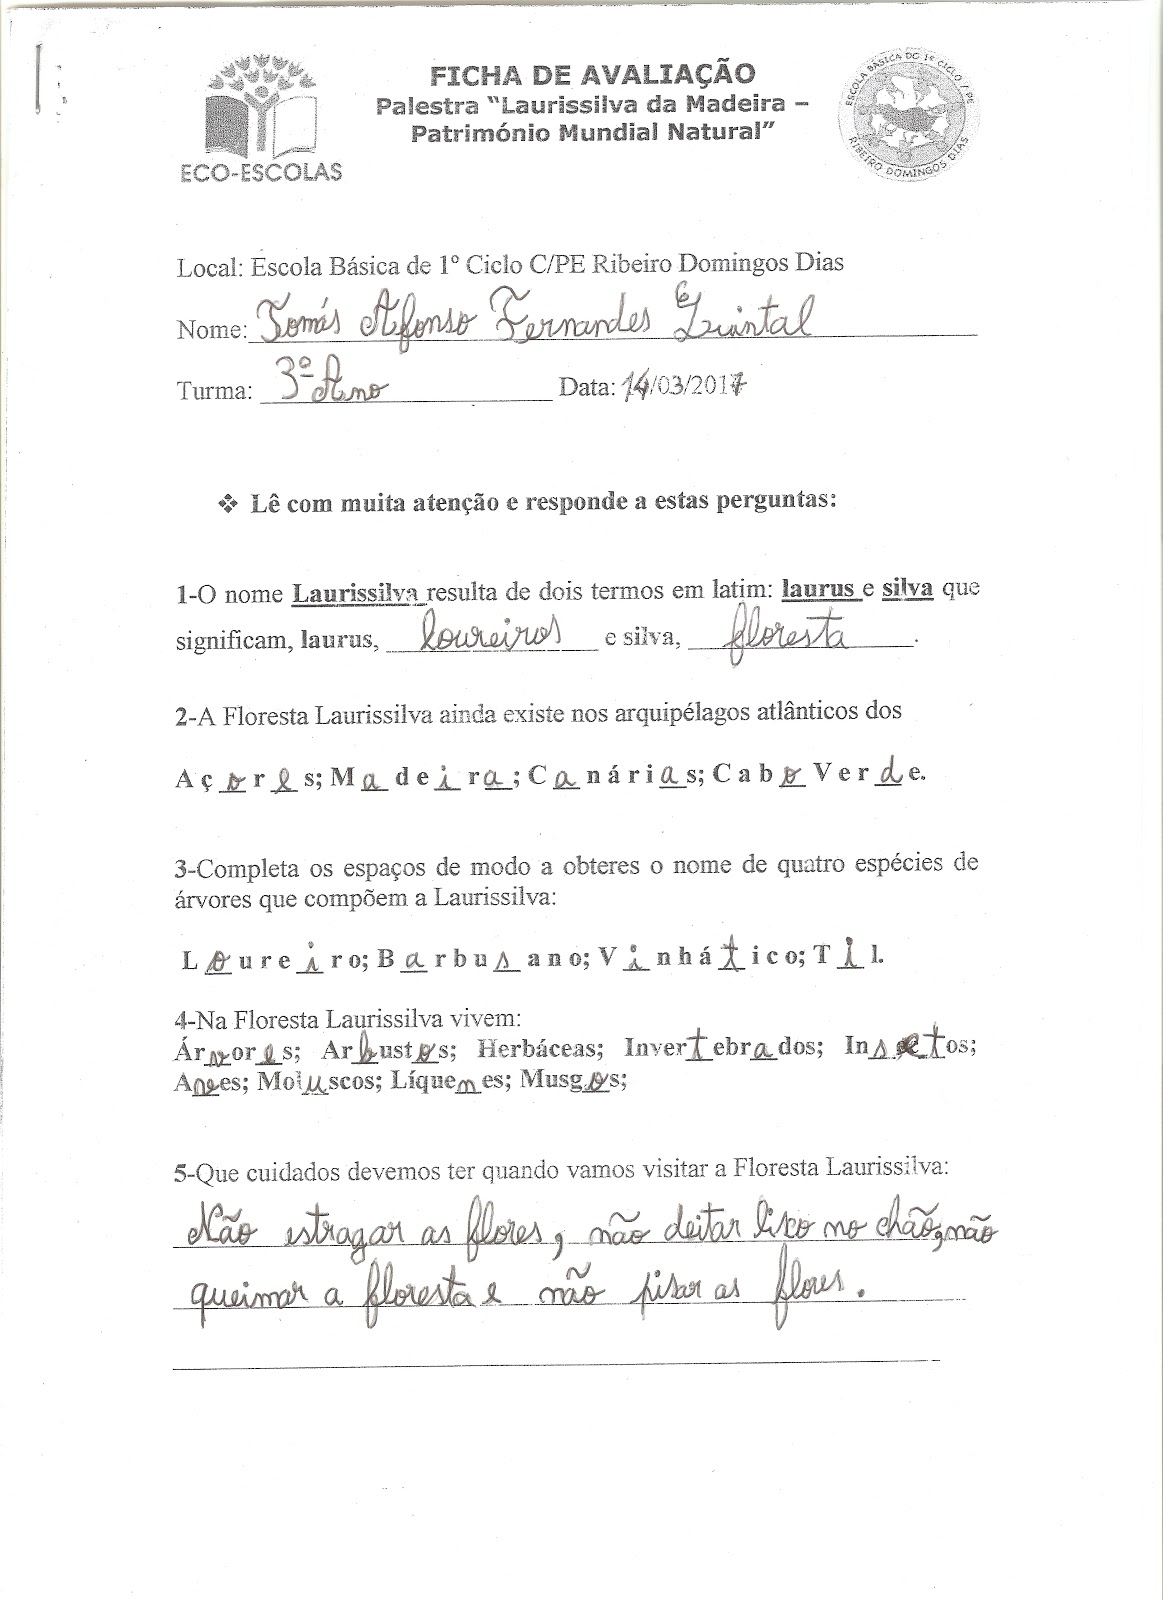 FICHA DE AVALIAÇÃO
Palestra "Laurissilva da Madeira –
Património Mundial Natural"
ECO-ESCOLAS
ESCOLA BÁSICA DO 1º CICLO / PE
RIBEIRO DOMINGOS DIAS
Local: Escola Básica de 1º Ciclo C/PE Ribeiro Domingos Dias
Nome: Tomás Afonso Fernandes Quintal
Turma: 3º Ano Data: 14/03/2017
❖ Lê com muita atenção e responde a estas perguntas:
1-O nome Laurissilva resulta de dois termos em latim: laurus e silva que
significam, laurus, loureiros e silva, floresta.
2-A Floresta Laurissilva ainda existe nos arquipélagos atlânticos dos
A ç o r e s; M a d e i r a ; C a n á r i a s; C a b o V e r d e.
3-Completa os espaços de modo a obteres o nome de quatro espécies de
árvores que compõem a Laurissilva:
L o u r e i r o; B a r b u s a n o; V i n h á t i c o; T i l.
4-Na Floresta Laurissilva vivem:
Árvores; Arbustos; Herbáceas; Invertebrados; Insetos;
Aves; Moluscos; Líquenes; Musgos;
5-Que cuidados devemos ter quando vamos visitar a Floresta Laurissilva:
Não estragar as flores, não deitar lixo no chão, não
queimar a floresta e não pisar as flores.